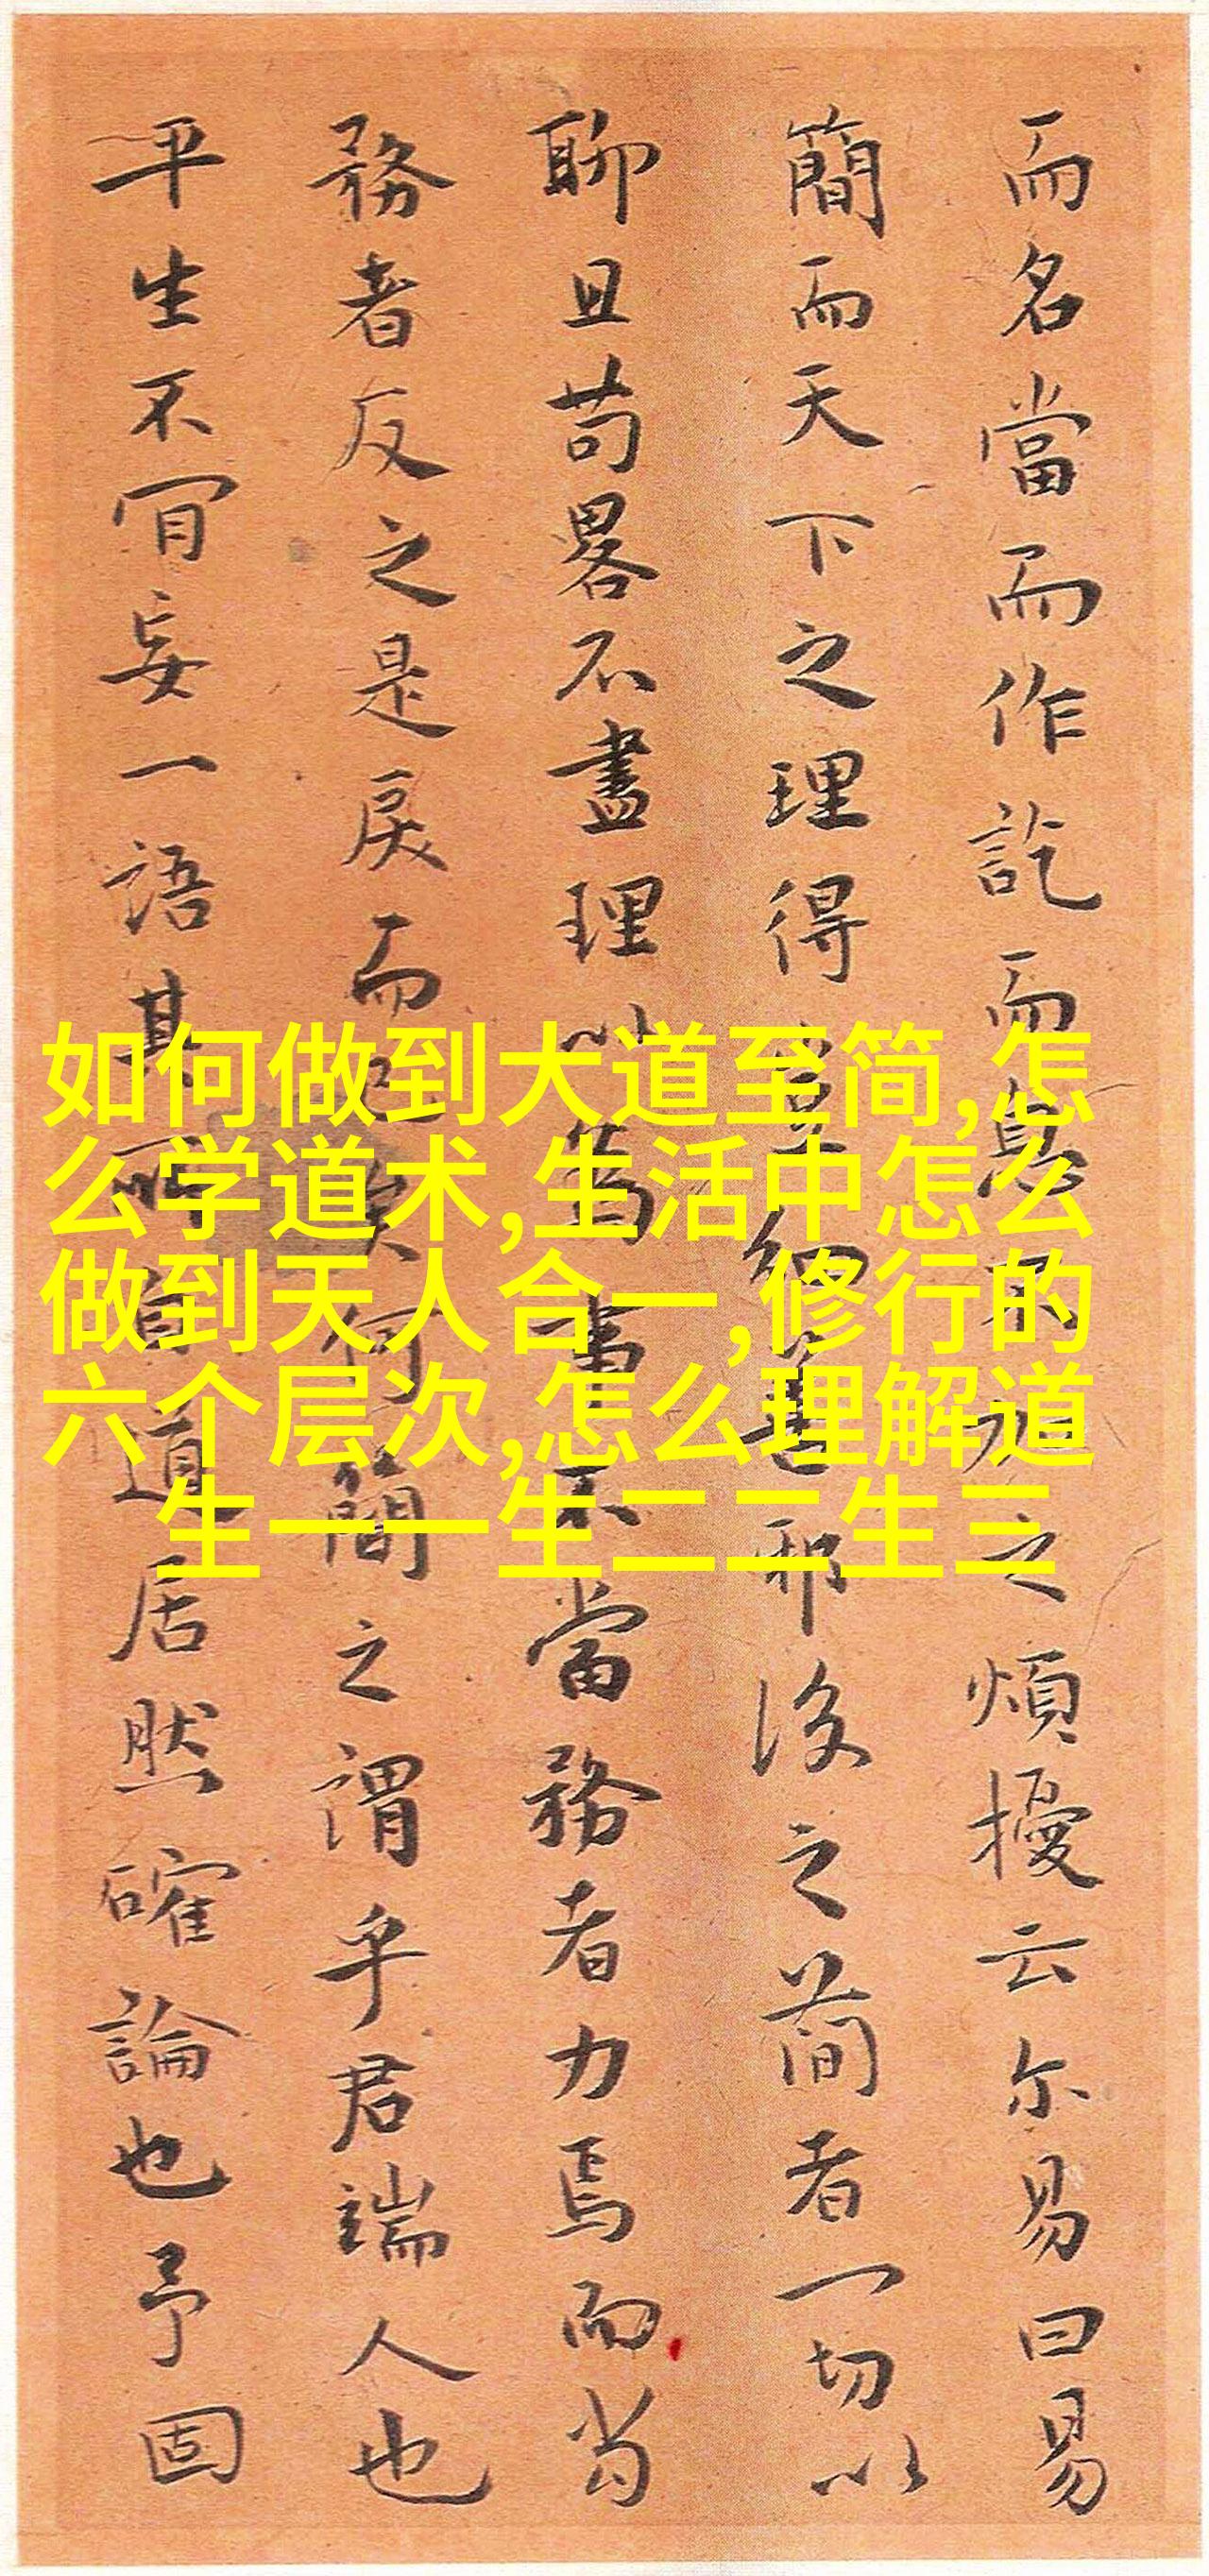 而名當而作訖而息不之煩擾云尔易曰易
簡而天下之理得豈細邪後之簡者一切以
聊且苟畧不盡理以爲事不當務者力焉而當
務者反之是戾而已矣何簡之謂乎君端人也
平生不肎妄一語其所自道居然確論也予固
如何做到大道至简,怎
么学道术,生活中怎么
做到天人合一,修行的
六个层次,怎么理解道
生一一生二二生三